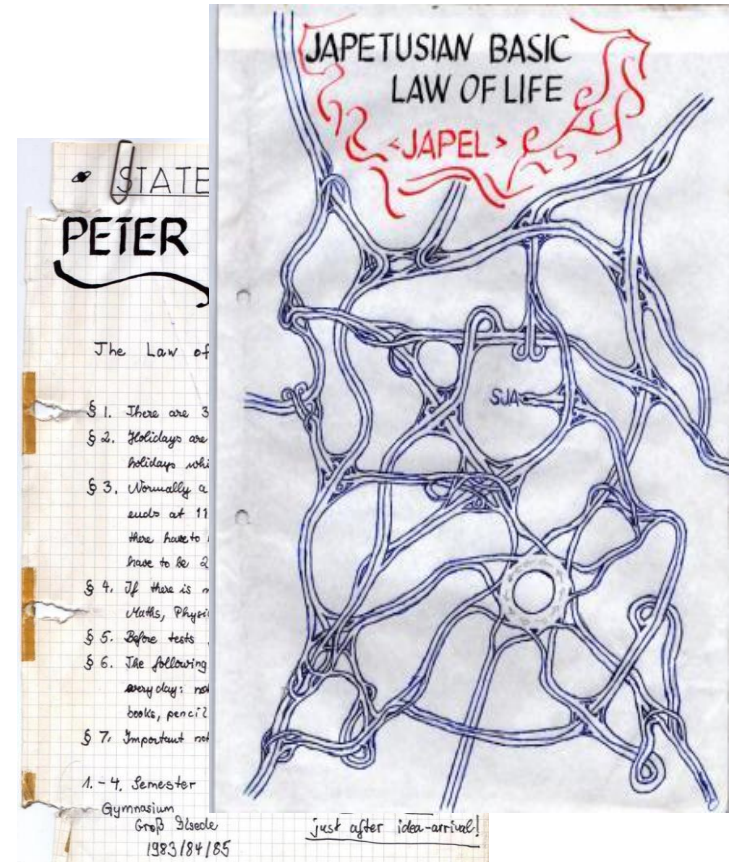 JAPETUSIAN BASIC
LAW OF LIFE
<JAPEL>
SJA
STATE
PETER
The Law of
§ 1. There are 3
§ 2. Holidays are
holidays whi
§ 3. Normally a
ends at 11
there have to
have to be 2
§ 4. If there is n
Maths, Physi
§ 5. Before tests
§ 6. The following
every day: not
books, pencil
§ 7. Important not
1. - 4. Semester
Gymnasium
Groß Ilsede
1983/84/85
just after idea-arrival!